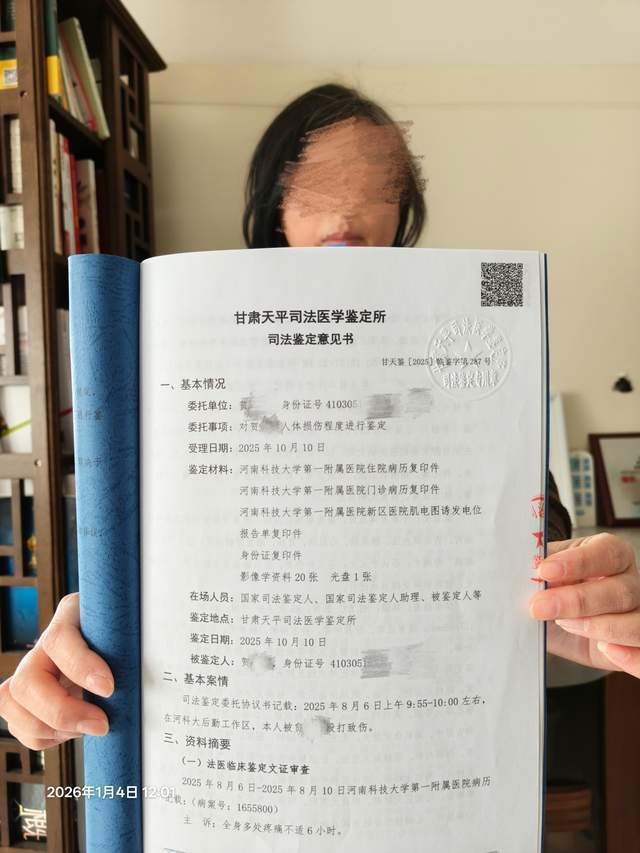 甘肃天平司法医学鉴定所
司法鉴定意见书
甘天鉴［2025］临鉴字第287号
一、基本情况
委托单位：贺 身份证号 410305
委托事项：对贺 人体损伤程度进行鉴定
受理日期：2025年10月10日
鉴定材料：河南科技大学第一附属医院住院病历复印件
河南科技大学第一附属医院门诊病历复印件
河南科技大学第一附属医院新区医院肌电图诱发电位
报告单复印件
身份证复印件
影像学资料20张 光盘1张
在场人员：国家司法鉴定人、国家司法鉴定人助理、被鉴定人等
鉴定地点：甘肃天平司法医学鉴定所
鉴定日期：2025年10月10日
被鉴定人：贺 身份证号 410305
二、基本案情
司法鉴定委托协议书记载：2025年8月6日上午9:55-10:00左右，
在河科大后勤工作区，本人被 殴打致伤。
三、资料摘要
（一）法医临床鉴定文证审查
2025年8月6日-2025年8月10日河南科技大学第一附属医院病历
记载：（病案号：1655800）
主 诉：全身多处疼痛不适6小时。
2026年1月4日 12:01